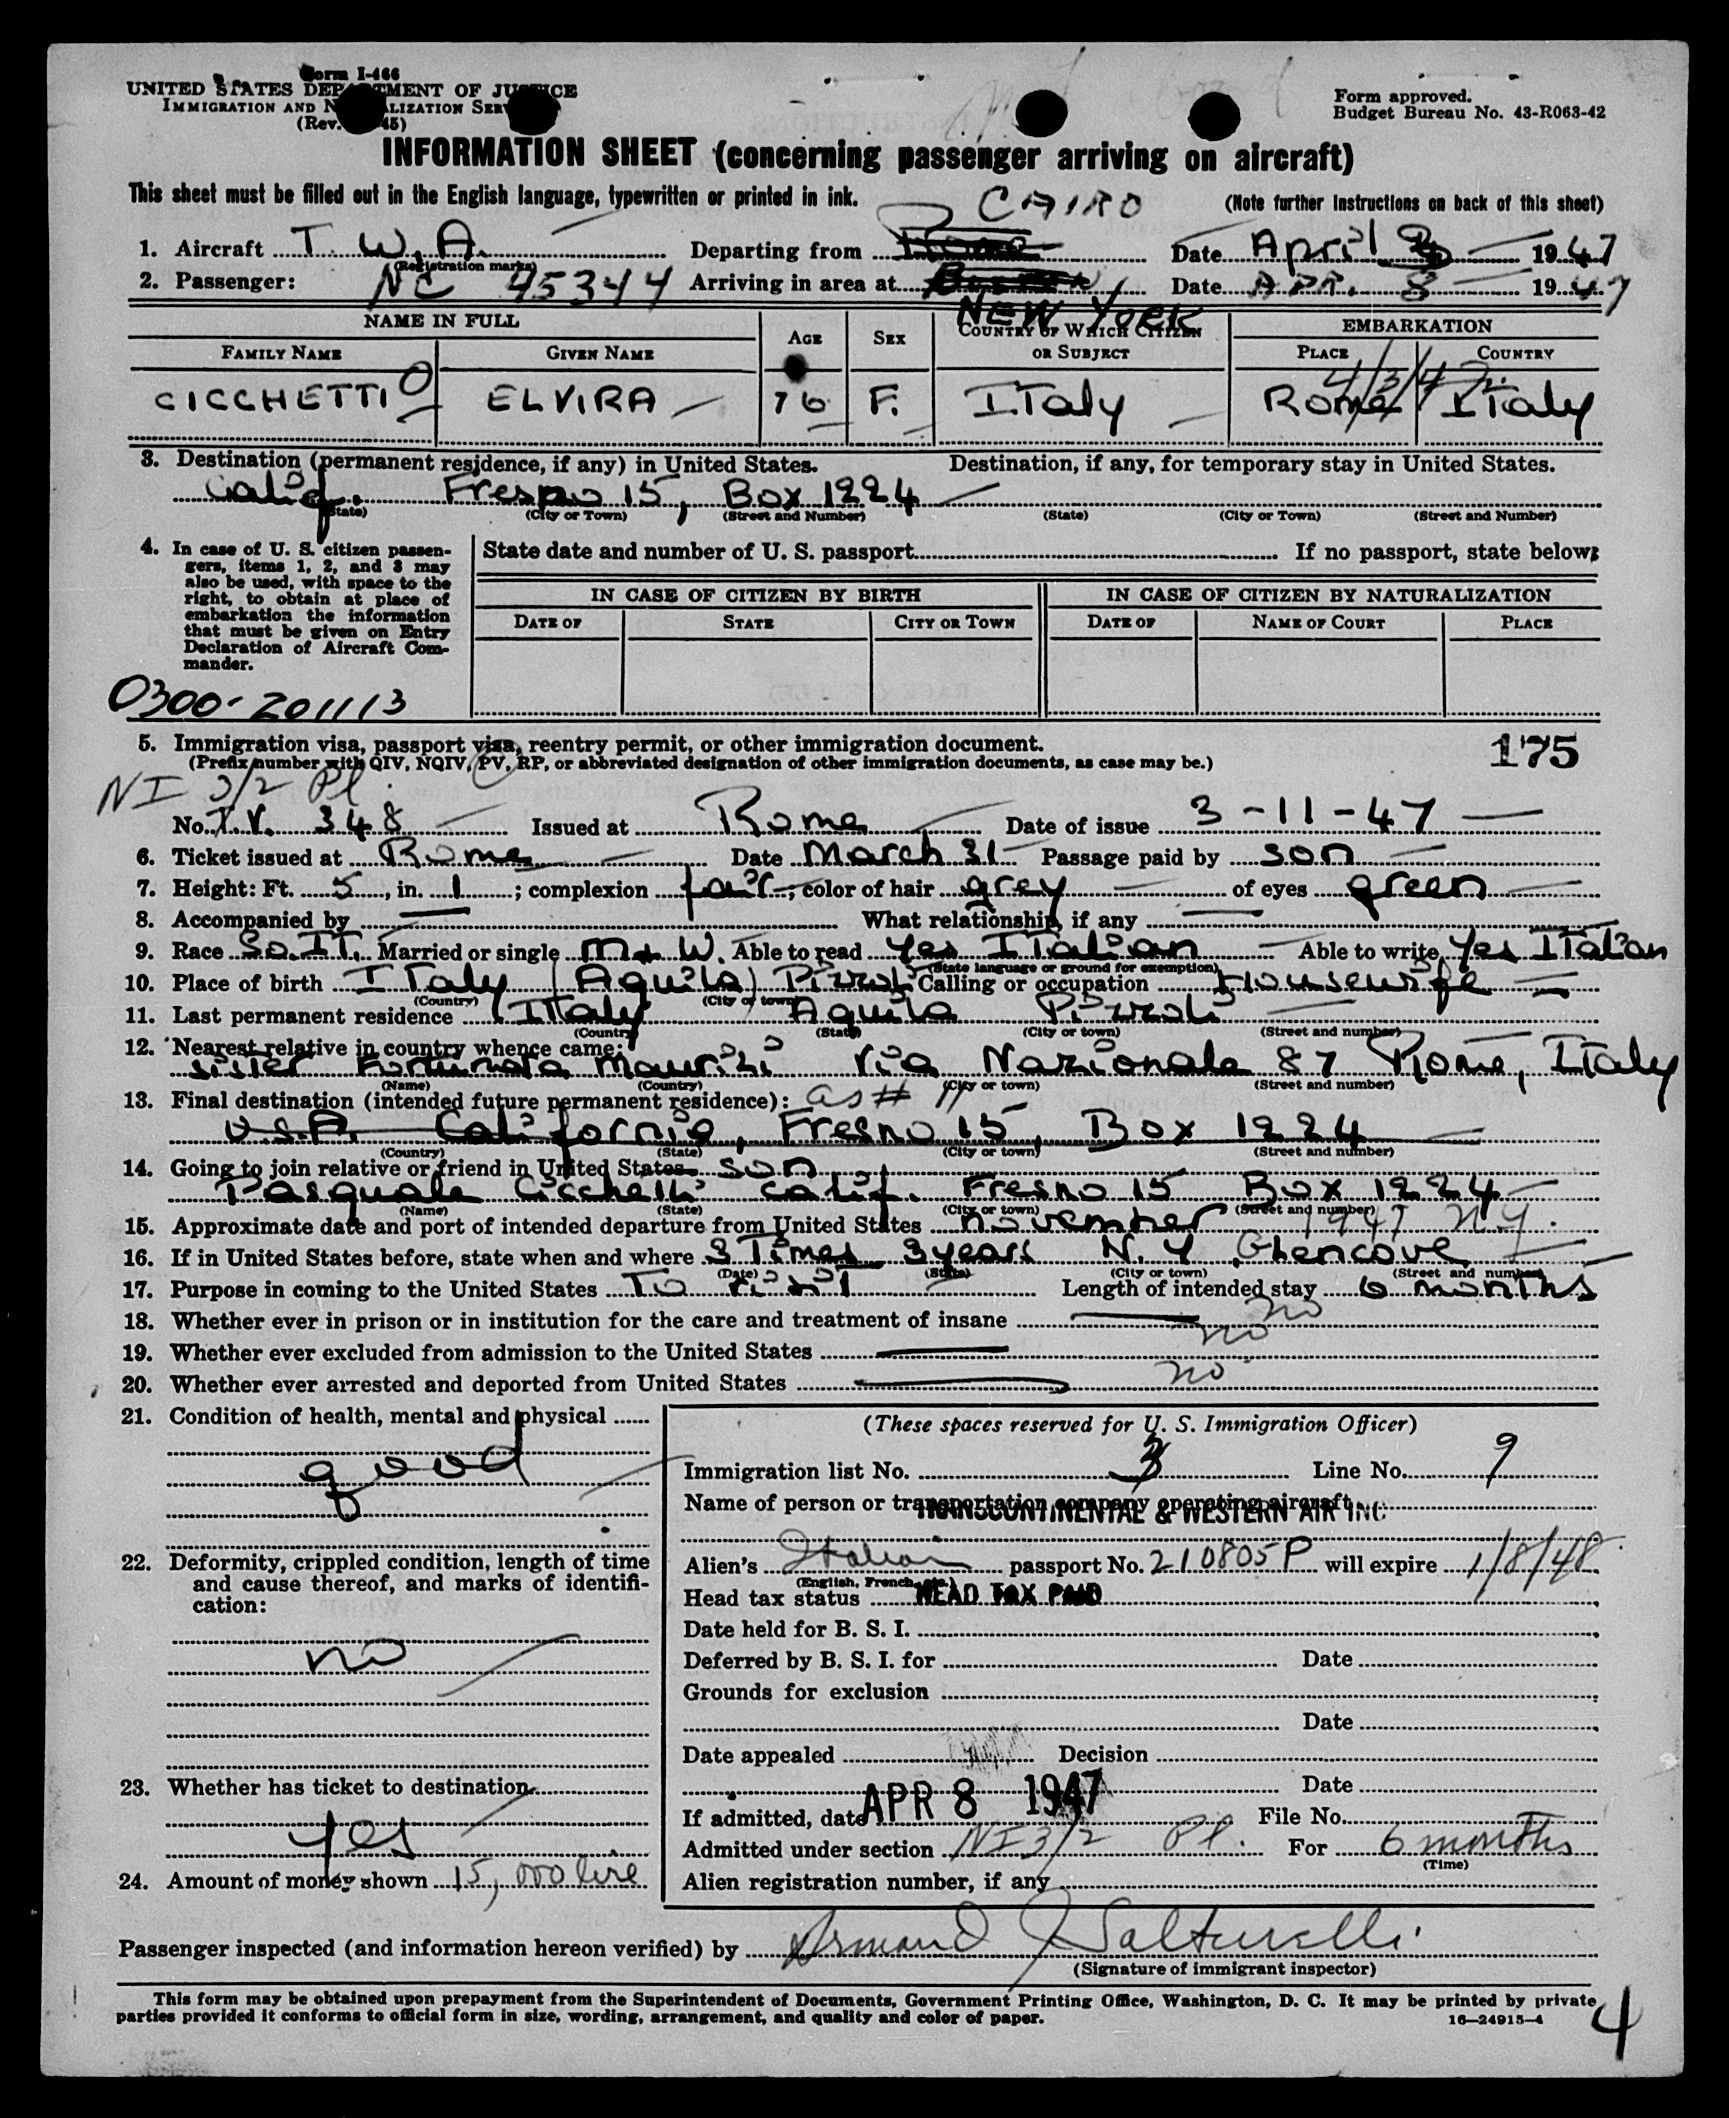 Form I-466
UNITED STATES DEPARTMENT OF JUSTICE
IMMIGRATION AND NATURALIZATION SERVICE
(Rev. 45)
Form approved.
Budget Bureau No. 43-R063-42
INFORMATION SHEET (concerning passenger arriving on aircraft)
This sheet must be filled out in the English language, typewritten or printed in ink.
(Note further instructions on back of this sheet)
CAIRO
1. Aircraft T.W.A. Departing from Date April 1947
(Registration marks)
2. Passenger: NC 45344 Arriving in area at Date APR. 8 1947
NEW YORK
NAME IN FULL AGE SEX COUNTRY OF WHICH CITIZEN OR SUBJECT EMBARKATION
FAMILY NAME GIVEN NAME PLACE COUNTRY
4/3/47
CICCHETTI ELVIRA 76 F. ITaly Rome ITaly
3. Destination (permanent residence, if any) in United States. Destination, if any, for temporary stay in United States.
Calif. Fresno 15, Box 1224
(State) (City or Town) (Street and Number) (State) (City or Town) (Street and Number)
4. In case of U. S. citizen passen-
gers, items 1, 2, and 3 may
also be used, with space to the
right, to obtain at place of
embarkation the information
that must be given on Entry
Declaration of Aircraft Com-
mander.
State date and number of U. S. passport If no passport, state below:
IN CASE OF CITIZEN BY BIRTH IN CASE OF CITIZEN BY NATURALIZATION
DATE OF STATE CITY OR TOWN DATE OF NAME OF COURT PLACE
0300-201113
5. Immigration visa, passport visa, reentry permit, or other immigration document.
(Prefix number with QIV, NQIV, PV, RP, or abbreviated designation of other immigration documents, as case may be.)
175
NI 3/2 Pl.
No. T.V. 348 Issued at Rome Date of issue 3-11-47
6. Ticket issued at Rome Date March 31 Passage paid by son
7. Height: Ft. 5, in. 1; complexion fair; color of hair grey of eyes green
8. Accompanied by What relationship, if any
9. Race So.IT. Married or single M+W. Able to read Yes ITalian Able to write Yes ITalian
(State language or ground for exemption)
10. Place of birth ITaly (Aquila) Pizzoli Calling or occupation Housewife
(Country) (City or town)
11. Last permanent residence ITaly Aquila Pizzoli
(Country) (State) (City or town) (Street and number)
12. Nearest relative in country whence came:
sister Fortunata Maurizi Via Nazionale 87 Rome, ITaly
(Name) (Country) (City or town) (Street and number)
13. Final destination (intended future permanent residence): as # 11
U.S.A. California, Fresno 15, Box 1224
(Country) (State) (City or town) (Street and number)
14. Going to join relative or friend in United States son
Pasquale Cicchetti Calif. Fresno 15 Box 1224
(Name) (State) (City or town) (Street and number)
15. Approximate date and port of intended departure from United States november 1947 N.Y.
16. If in United States before, state when and where 3 Times 3 years N.Y. Glencove
(Date) (State) (City or town) (Street and number)
17. Purpose in coming to the United States To visit Length of intended stay 6 months
18. Whether ever in prison or in institution for the care and treatment of insane no
19. Whether ever excluded from admission to the United States no
20. Whether ever arrested and deported from United States no
21. Condition of health, mental and physical
good
22. Deformity, crippled condition, length of time
and cause thereof, and marks of identifi-
cation:
no
23. Whether has ticket to destination
yes
24. Amount of money shown 15,000 lire
(These spaces reserved for U. S. Immigration Officer)
Immigration list No. 3 Line No. 9
Name of person or transportation company operating aircraft
TRANSCONTINENTAL & WESTERN AIR INC
Alien's Italian passport No. 210805P will expire 1/8/48
(English, French, etc.)
Head tax status HEAD TAX PAID
Date held for B. S. I.
Deferred by B. S. I. for Date
Grounds for exclusion
Date
Date appealed Decision
Date
If admitted, date APR 8 1947 File No.
Admitted under section NI 3/2 Pl. For 6 months
(Time)
Alien registration number, if any
Passenger inspected (and information hereon verified) by Armand J. Salturelli
(Signature of immigrant inspector)
This form may be obtained upon prepayment from the Superintendent of Documents, Government Printing Office, Washington, D. C. It may be printed by private
parties provided it conforms to official form in size, wording, arrangement, and quality and color of paper.
16—24915-4
4